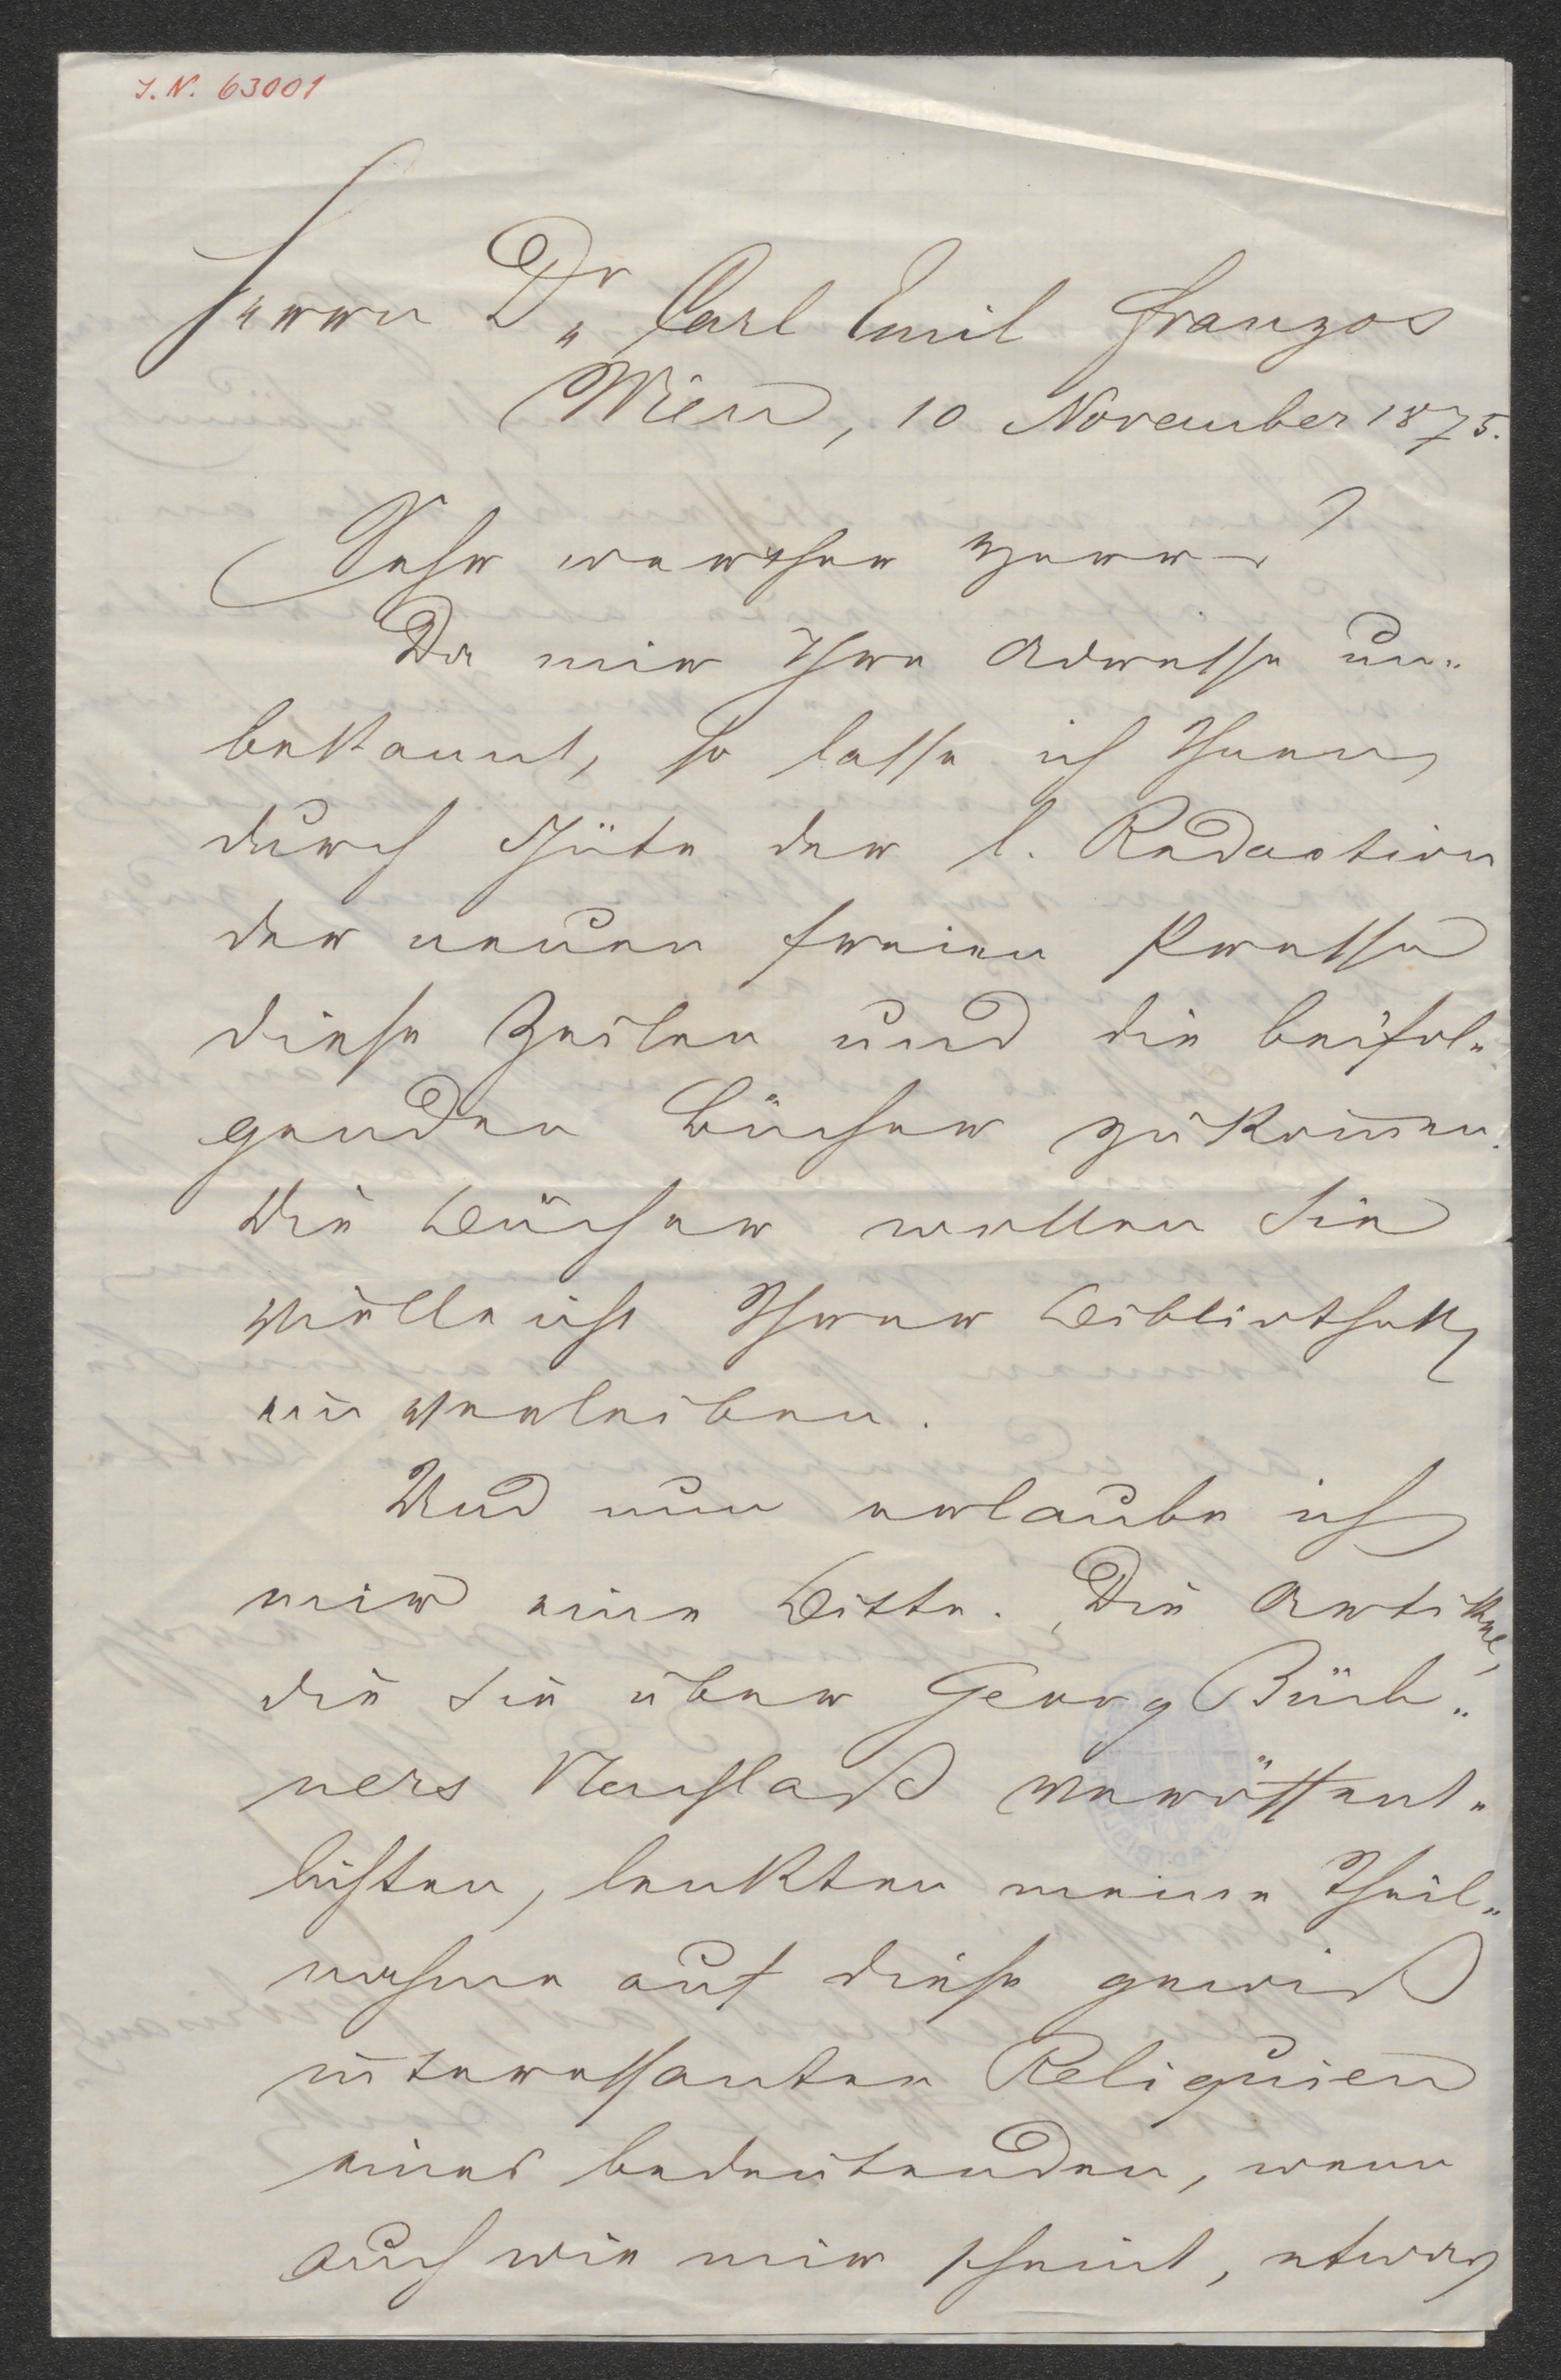 I.N. 63001
Herrn Dr. Carl Emil Franzos
Wien, 10 November 1875.
Sehr werther Herr!
Da mir Ihre Adresse un-
bekannt, so lasse ich Ihnen
durch Güte der l. Redaction
der neuen freien Presse
diese Zeilen und die beifol-
genden Bücher zukom̅en.
Die Bücher wollen Sie
vielleicht Ihrer Bibliothek
einverleiben.
Und nun erlaube ich
mir eine Bitte. Die Artikel,
die Sie über Georg Büch-
ners Nachlaß veröffent-
lichten, lenkten meine Theil-
nahme auf diese gewiß
interessanten Reliquien
eines bedeutenden, wenn
auch wie mir scheint, etwas